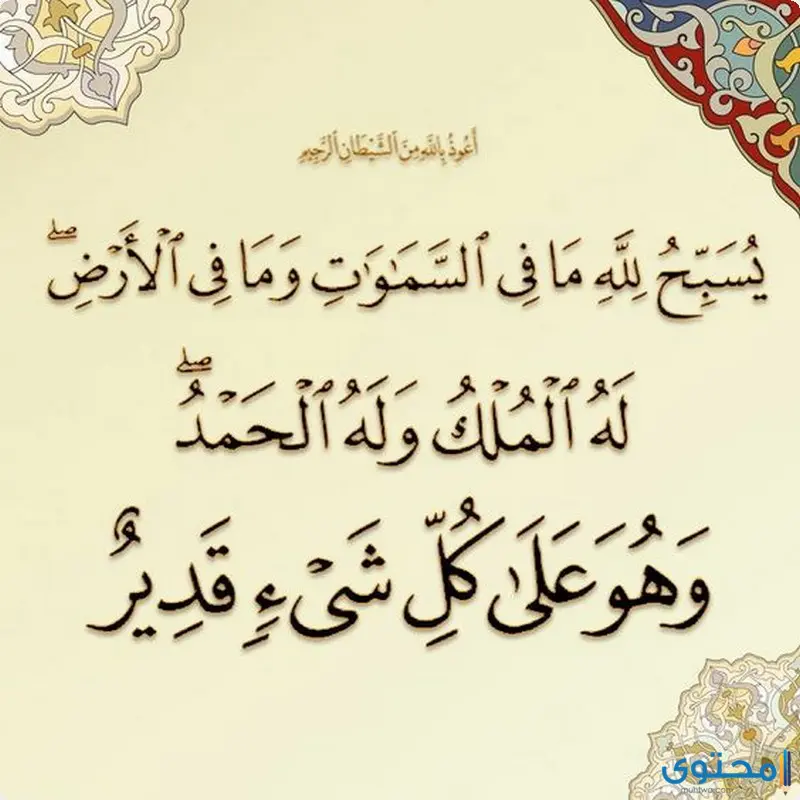 أَعُوذُ بِاللَّهِ مِنَ ٱلشَّيْطَانِ ٱلرَّجِيمِ
يُسَبِّحُ لِلَّهِ مَا فِى ٱلسَّمَـٰوَٰتِ وَمَا فِى ٱلْأَرْضِ ۖ
لَهُ ٱلْمُلْكُ وَلَهُ ٱلْحَمْدُ ۖ
وَهُوَ عَلَىٰ كُلِّ شَىْءٍ قَدِيرٌ
محتوى
muhtwa.com